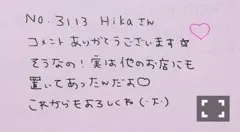 No. 3113 Hikaさん
コメントありがとうございます☆
そうなの！実は他のお店にも
置いてあったんだよ♡
これからもよろしくね(・x・)